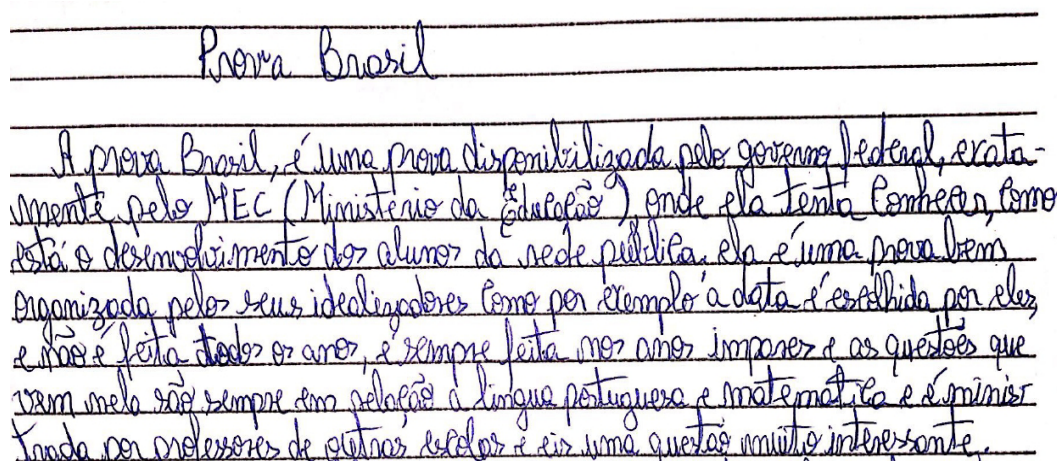 Prova Brasil
A prova Brasil, é uma prova disponibilizada pelo governo federal, exata-
mente pelo MEC (Ministério da Educação), onde ela tenta conhecer, como
está o desenvolvimento dos alunos da rede pública. ela é uma prova bem
organizada pelos seus idealizadores como por exemplo a data é escolhida por eles,
e não é feita todos os anos, é sempre feita nos anos impares e as questões que
vem nela são sempre em relação à lingua portuguesa e matemática e é minis
trada por professores de outras escolas e eis uma questão muito interessante.